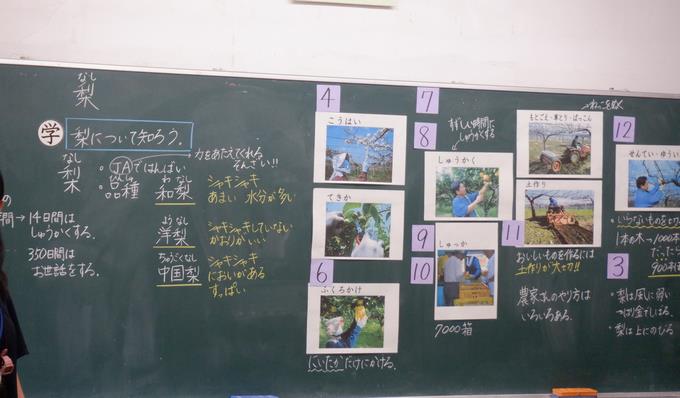 なし
梨
学 梨について知ろう。
なし
梨
木
力をあたえてくれる
そんざい!!
・JAではんばい
・品種
わなし
和梨
シャキシャキ
あまい 水分が多い
ようなし
洋梨
シャキシャキしていない
かおりがいい
ちゅうごくなし
中国梨
シャキシャキ
においがある
すっぱい
間→14日間は
しゅうかくする。
350日間は
お世話をする。
4
こうはい
てきか
6
ふくろかけ
にいたかだけにかける。
7
8
すずしい時間に
しゅうかくする
しゅうかく
9
10
しゅっか
7000箱
11
もとごえ・草とり・ばっこん
土作り
おいしいものを作るには
土作りが大切!!
農家さんのやり方は
いろいろある。
12
せんてい・ゆうい
・いらないものを切
1本の木→1000本
900本
3
・梨は風に弱い
・梨は上にのびる